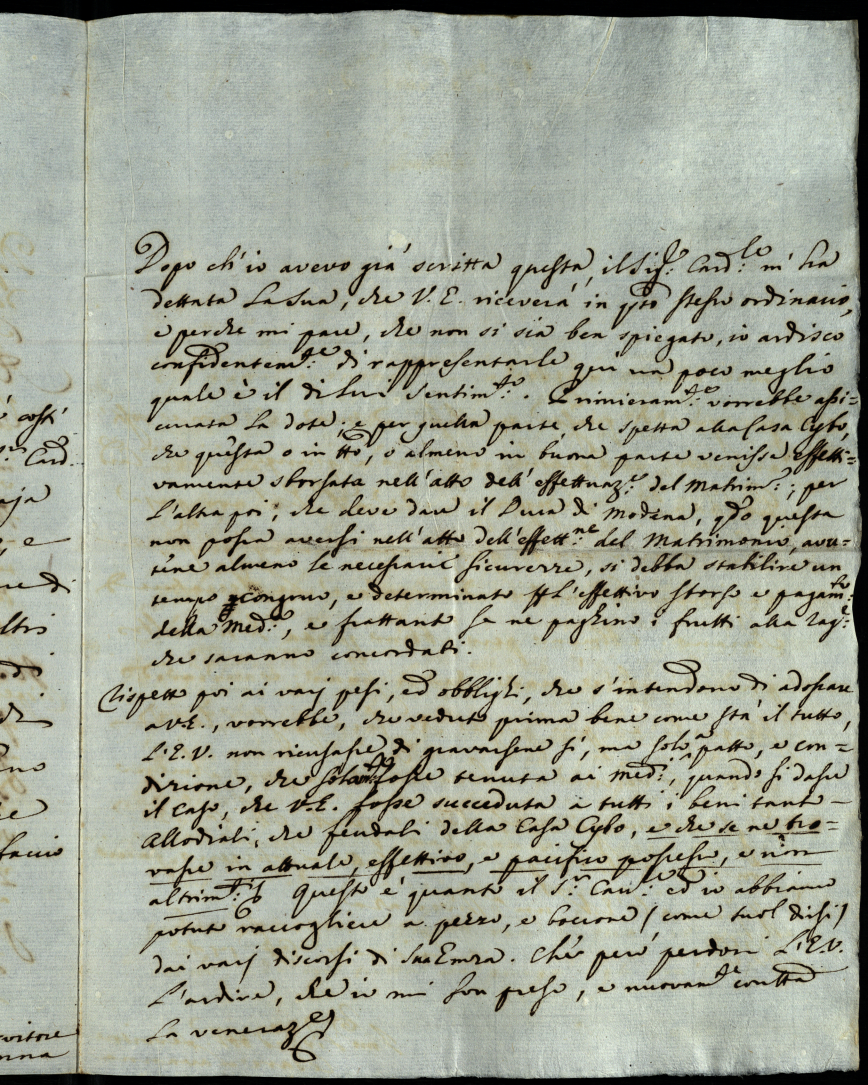 Dopo ch'io avevo già scritta questa, il Sig.r Card.le m'ha
dettata la sua, che V. E. riceverà in q̃to stesso ordinario,
e perche mi pare, che non si sia ben spiegato, io ardisco
confidentem.te di rappresentarle qui un poco meglio
quale è il di lui sentim.to. Primieram.te vorrebbe assi=
curata la dote; e per quella parte, che spetta alla Casa Cybo,
che questa o in tto, o almeno in buona parte venisse effetti=
vamente sborsata nell'atto dell'effettuaz.e del Matrim.o; per
l'altra poi, che deve dare il Duca di Modena, q̃do questa
non possa aversi nell'atto dell'effett.ne del Matrimonio, avu=
tene almeno le necessarie sicurezze, si debba stabilire un
tempo congruo, e determinato l'effettivo sborso e pagam.to
della Med.a, e frattanto se ne paghino i frutti alla rag.e
che saranno concordati.
Rispetto poi ai varj pesi, ed obblighi, che s'intendono di adossare
a V.E., vorrebbe, che veduto prima bene come stà il tutto,
l'E. V. non ricusasse di gravarsene sì, ma solo a patto, e con=
dizione, che solam.te fosse tenuta ai med.i, quando si dasse
il caso, che V.E. fosse succeduta a tutti i beni tanto
Allodiali, che feudali della Casa Cybo, e che se ne tro=
vasse in attuale, effettivo, e pacifico possesso, e non
altrim.ti Questo è quanto il S.r Card.le ed io abbiamo
potuto raccogliere a pezzo, e boccone (come suol dirsi)
dai varj discorsi di Sua Emza. Che però perdoni l'E.V.
l'ardire, che io mi son preso, e nuovam.te con tta
la veneraz.e
costì
Card.
aja
e
di
ltri
di
no
re
faccio
rvitore
nna